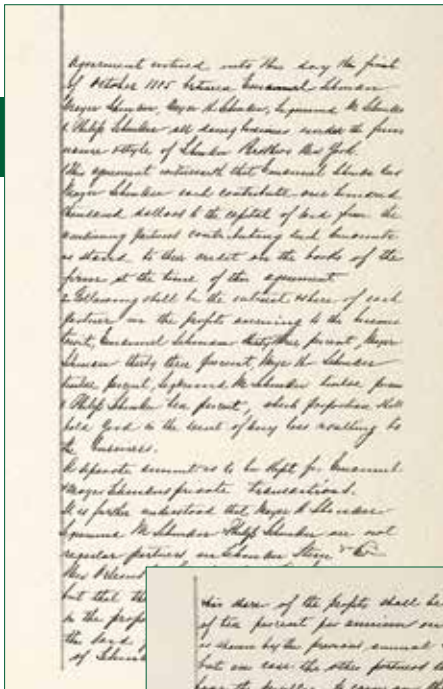 Agreement entered into this day the first
of October 1885 between Emanuel Lehman
Mayer Lehman, Meyer H Lehman, Sigmund M Lehman
& Philip Lehman all doing business under the firm
name & style of Lehman Brothers New York.
This agreement witnesseth that Emanuel Lehman and
Mayer Lehman each contribute one hundred
thousand dollars to the capital of said firm the
remaining partners contributing such amounts
as stand to their credit on the books of the
firm at the time of this agreement
2 Following shall be the interest & share of each
partner in the profits accruing to the business
to wit, Emanuel Lehman thirty three percent, Mayer
Lehman thirty three percent, Meyer H Lehman
twelve percent, Sigmund M Lehman twelve percent
& Philip Lehman ten percent, which proportion shall
hold good in the event of any loss resulting to
the business.
A separate account is to be kept for Emanuel
& Mayer Lehmans private transactions.
It is further understood that Meyer H Lehman
Sigmund M Lehman & Philip Lehman are not
regular partners in Lehman Stern & Co
New Orleans
but that the
in the
the said
of Lehman
his share of the profits shall be
of ten percent per annum on
is shown by the previous annual
but in case the other partners